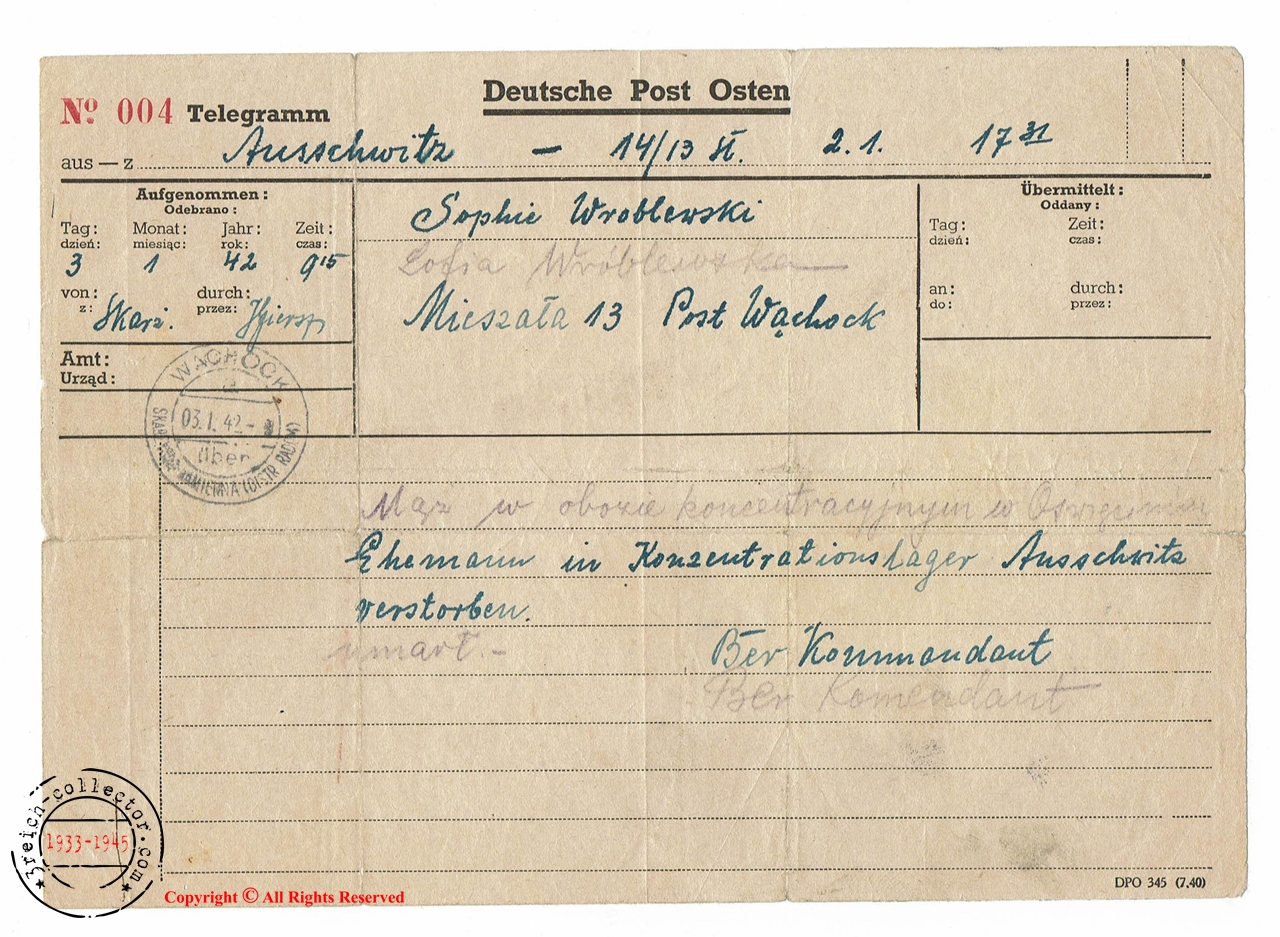 Deutsche Post Osten
Nº 004 Telegramm
aus — z Ausschwitz — 14/13 W. 2.1. 17 31
Aufgenommen:
Odebrano:
Tag: Monat: Jahr: Zeit:
dzień: miesiąc: rok: czas:
3 1 42 9 15
von: durch:
z: Skarż. przez:
Amt:
Urząd:
Sophie Wroblewski
Zofia Wróblewska
Mieszała 13 Post Wąchock
Übermittelt:
Oddany:
Tag: Zeit:
dzień: czas:
an: durch:
do: przez:
WĄCHOCK
03.1.42
über
SKARŻYSKO KAMIENNA (DISTR RADOM)
Mąż w obozie koncentracyjnym w Oświęcimiu
Ehemann in Konzentrationslager Ausschwitz
verstorben.
umarł.-
Ber Kommandant
Ber Komendant
DPO 345 (7.40)
3reich-collector.com
1933-1945
Copyright © All Rights Reserved